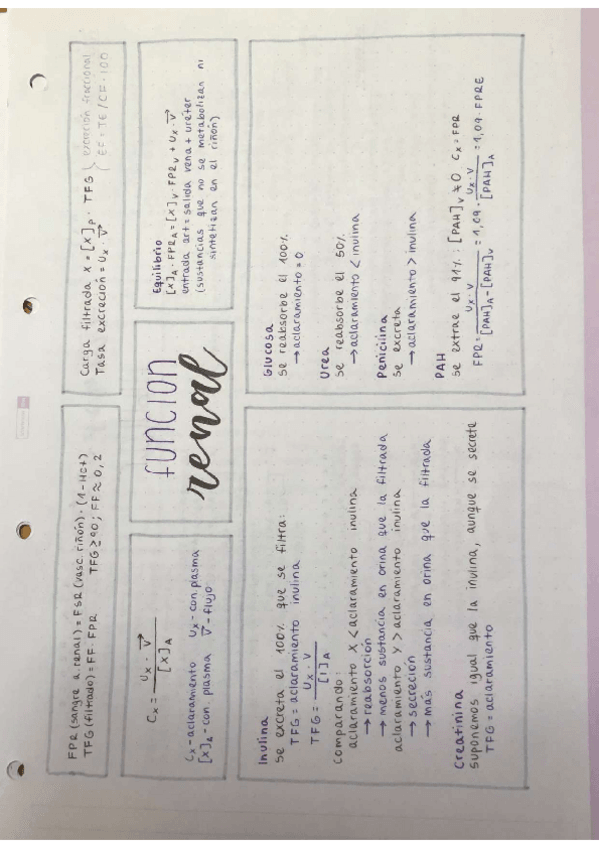 FPR (sangre a. renal) = FSR (vasc. riñón) · (1-Hct)
TFG (filtrado) = FF · FPR TFG ≥ 90; FF ≈ 0,2
Carga filtrada X = [X]p · TFG
Tasa excreción = Ux · V
excreción fraccional
EF = TE / CF · 100
Cx = Ux · V / [X]A
Cx - aclaramiento Ux - con. plasma
[X]A - con. plasma V - flujo
FUNCION
renal
Equilibrio
[X]A · FPRA = [X]V · FPRV + Ux · V
entrada art = salida vena + uréter
(sustancias que no se metabolizan ni
sintetizan en el riñón)
Inulina
Se excreta el 100% que se filtra:
TFG = aclaramiento inulina
TFG = Ux · V / [I]A
Comparando:
aclaramiento X < aclaramiento inulina
→ reabsorción
→ menos sustancia en orina que la filtrada
aclaramiento Y > aclaramiento inulina
→ secreción
→ más sustancia en orina que la filtrada
Creatinina
Suponemos igual que la inulina, aunque se secrete
TFG = aclaramiento
Glucosa
Se reabsorbe el 100%
→ aclaramiento = 0
Urea
Se reabsorbe el 50%
→ aclaramiento < inulina
Penicilina
Se excreta
→ aclaramiento > inulina
PAH
Se extrae el 91% : [PAH]V ≠ 0 Cx = FPR
FPR = Ux · V / [PAH]A - [PAH]V = 1,09 · Ux · V / [PAH]A = 1,09 · FPRE